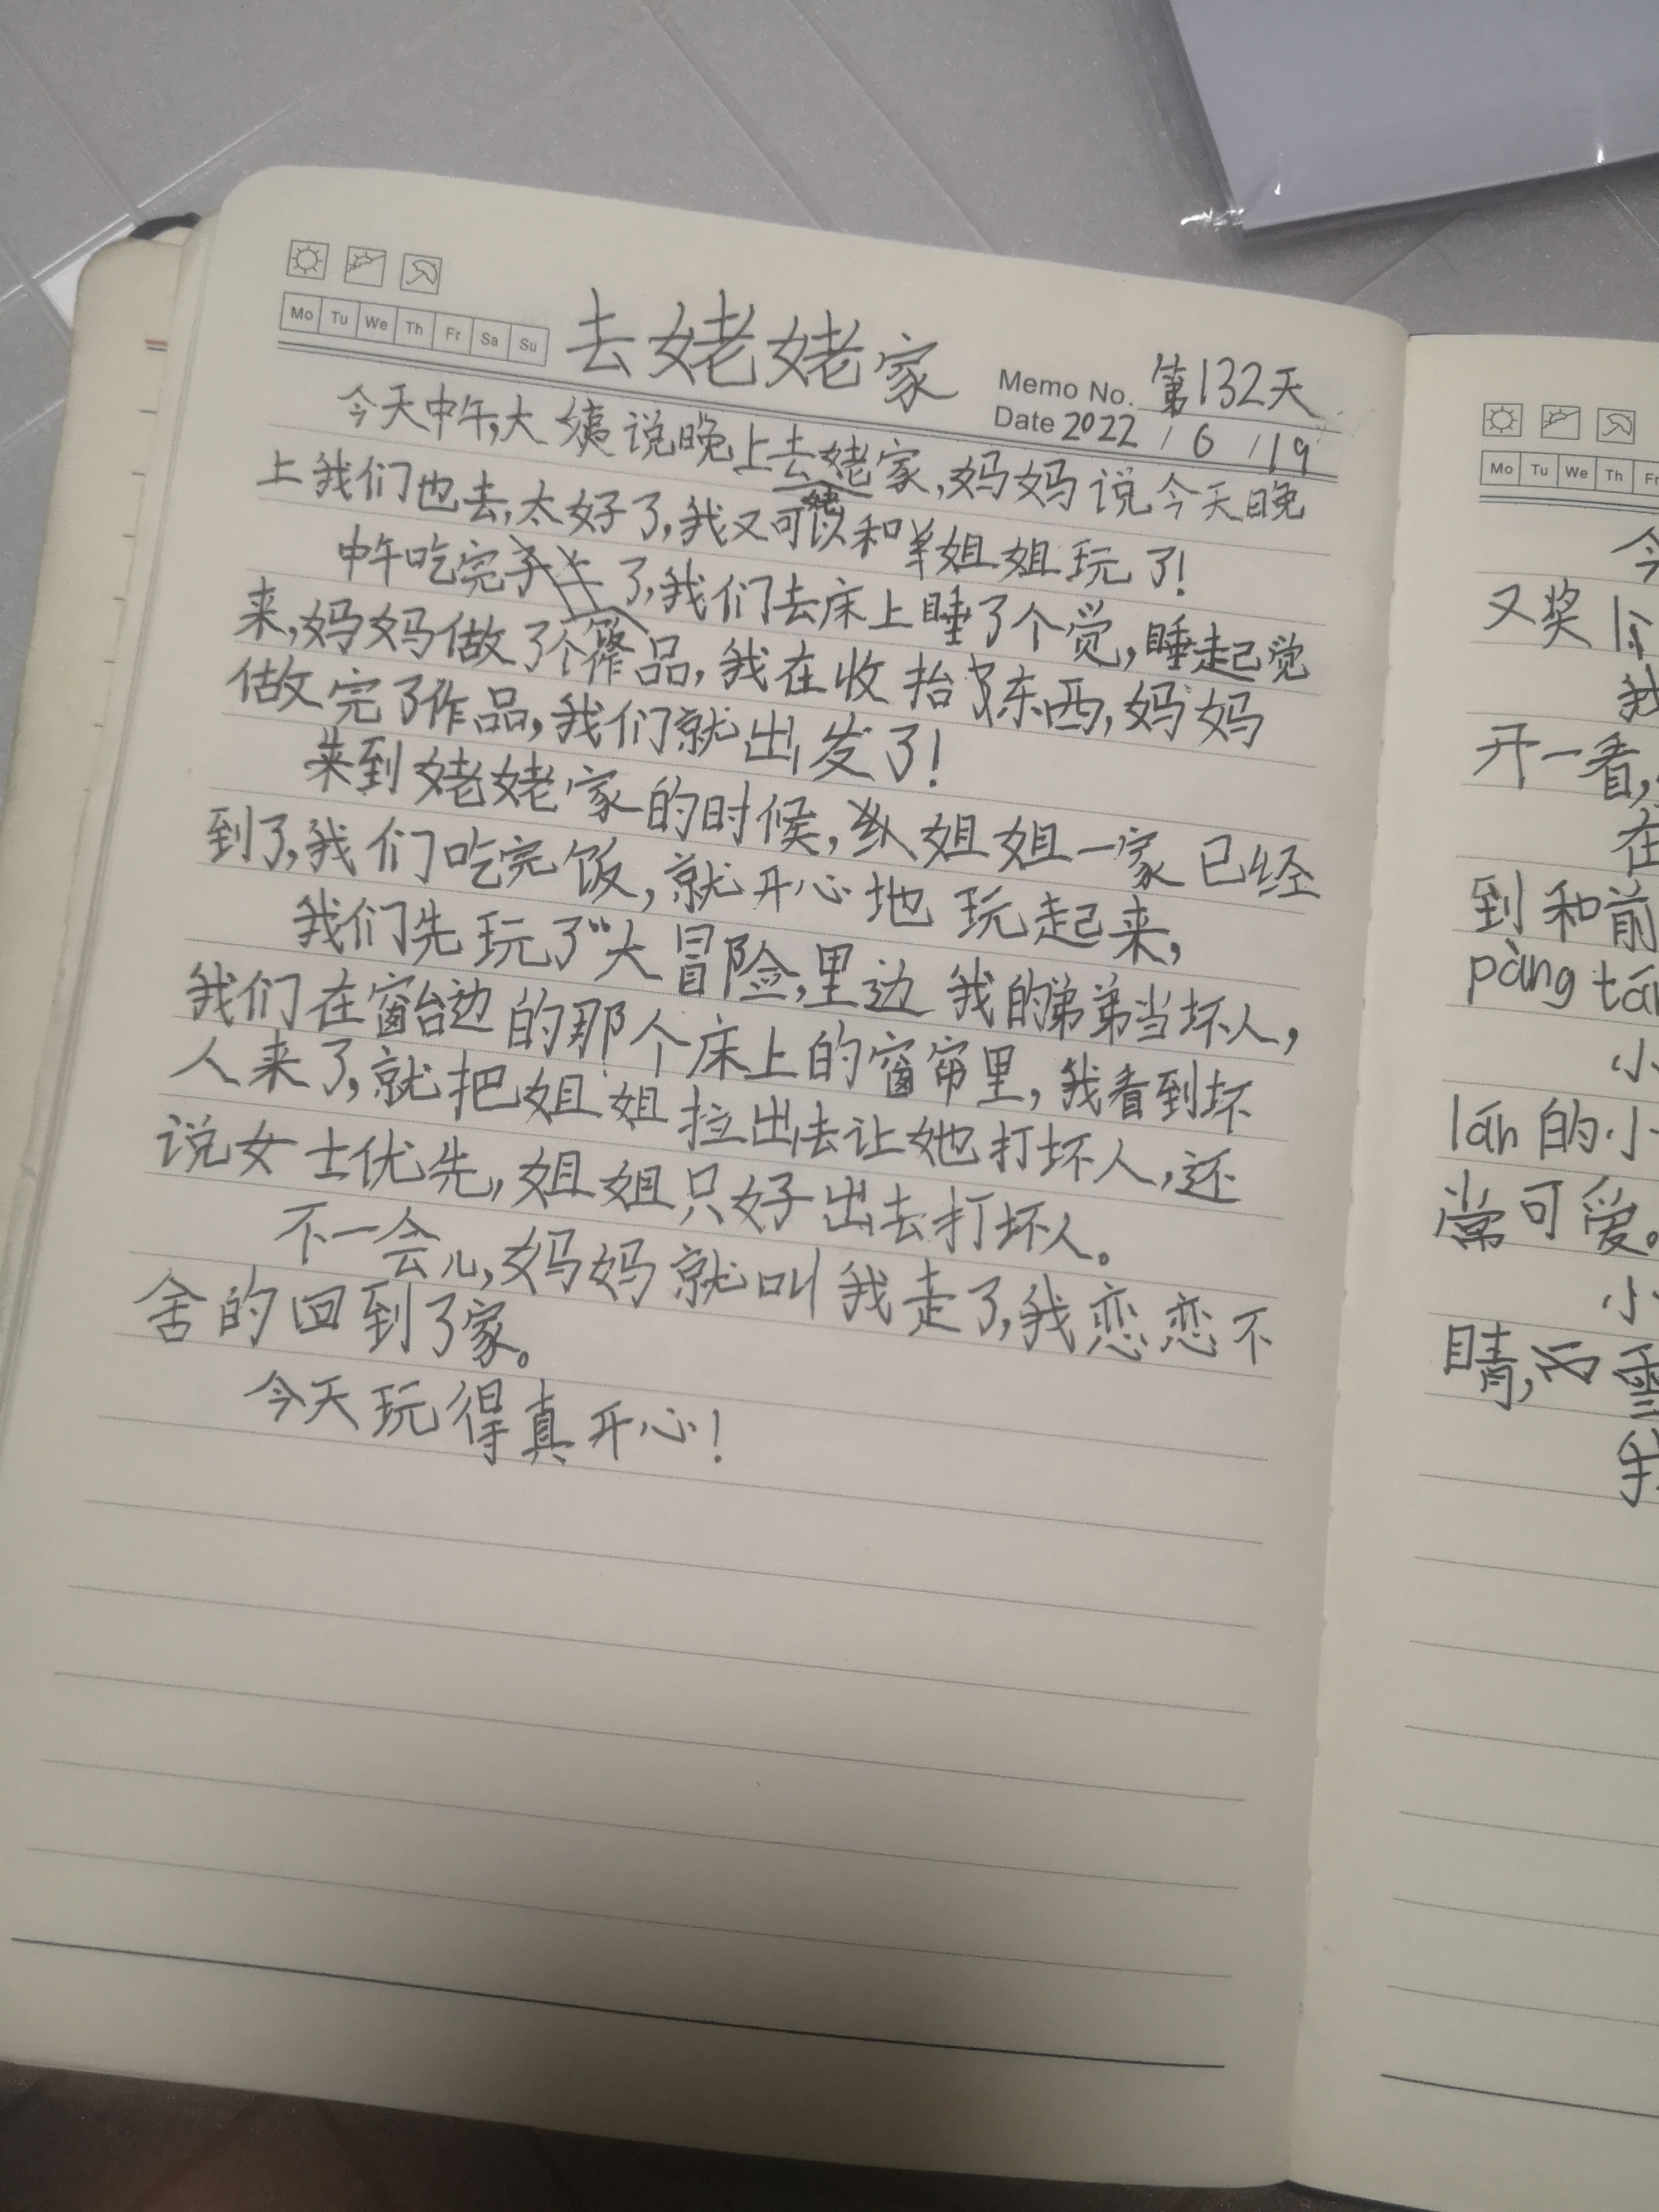 Mo Tu We Th Fr Sa Su
去姥姥家
Memo No. 第132天
Date 2022 / 6 / 19
今天中午,大姨说晚上去姥姥家,妈妈说今天晚
上我们也去,太好了,我又可以和羊姐姐玩了!
中午吃完了,我们去床上睡了个觉,睡起觉
来,妈妈做了个作品,我在收拾了东西,妈妈
做完了作品,我们就出发了!
来到姥姥家的时候,姐姐一家已经
到了,我们吃完饭,就开心地玩起来,
我们先玩了“大冒险,里边我的弟弟当坏人,
我们在窗台边的那个床上的窗帘里,我看到坏
人来了,就把姐姐拉出去让她打坏人,还
说女士优先,姐姐只好出去打坏人。
不一会儿,妈妈就叫我走了,我恋恋不
舍的回到了家。
今天玩得真开心!
Mo Tu We Th Fr
今
又奖
我
开一看,
在
到和前
pàng
小
lán的小
常可爱。
小
睛,两
我